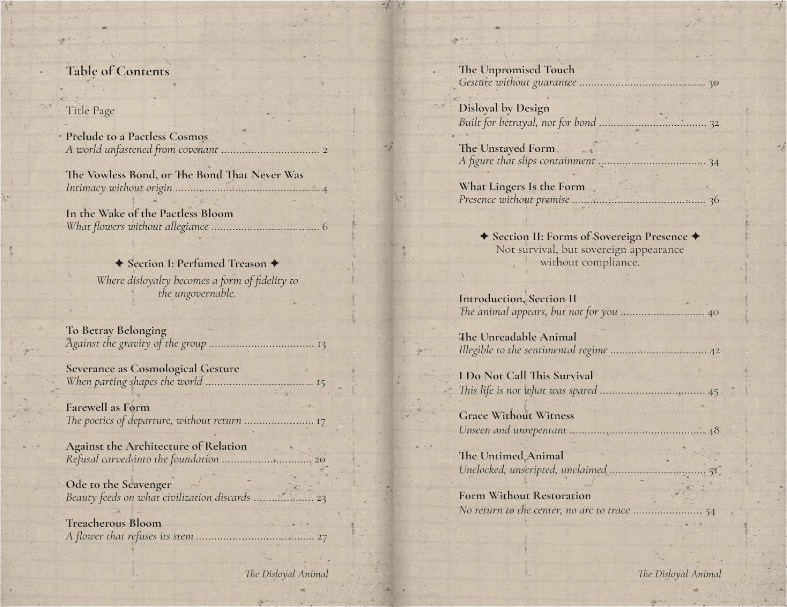 Table of Contents
Title Page
Prelude to a Pactless Cosmos
A world unfastened from covenant ........................................ 2
The Vowless Bond, or The Bond That Never Was
Intimacy without origin ........................................ 4
In the Wake of the Pactless Bloom
What flowers without allegiance ........................................ 6
✦ Section I: Perfumed Treason ✦
Where disloyalty becomes a form of fidelity to
the ungovernable.
To Betray Belonging
Against the gravity of the group ........................................ 13
Severance as Cosmological Gesture
When parting shapes the world ........................................ 15
Farewell as Form
The poetics of departure, without return ........................................ 17
Against the Architecture of Relation
Refusal carved into the foundation ........................................ 20
Ode to the Scavenger
Beauty feeds on what civilization discards ........................................ 23
Treacherous Bloom
A flower that refuses its stem ........................................ 27
The Disloyal Animal
The Unpromised Touch
Gesture without guarantee ........................................ 30
Disloyal by Design
Built for betrayal, not for bond ........................................ 32
The Unstayed Form
A figure that slips containment ........................................ 34
What Lingers Is the Form
Presence without promise ........................................ 36
✦ Section II: Forms of Sovereign Presence ✦
Not survival, but sovereign appearance
without compliance.
Introduction, Section II
The animal appears, but not for you ........................................ 40
The Unreadable Animal
Illegible to the sentimental regime ........................................ 42
I Do Not Call This Survival
This life is not what was spared ........................................ 45
Grace Without Witness
Unseen and unrepentant ........................................ 48
The Untimed Animal
Unclocked, unscripted, unclaimed ........................................ 51
Form Without Restoration
No return to the center, no arc to trace ........................................ 54
The Disloyal Animal